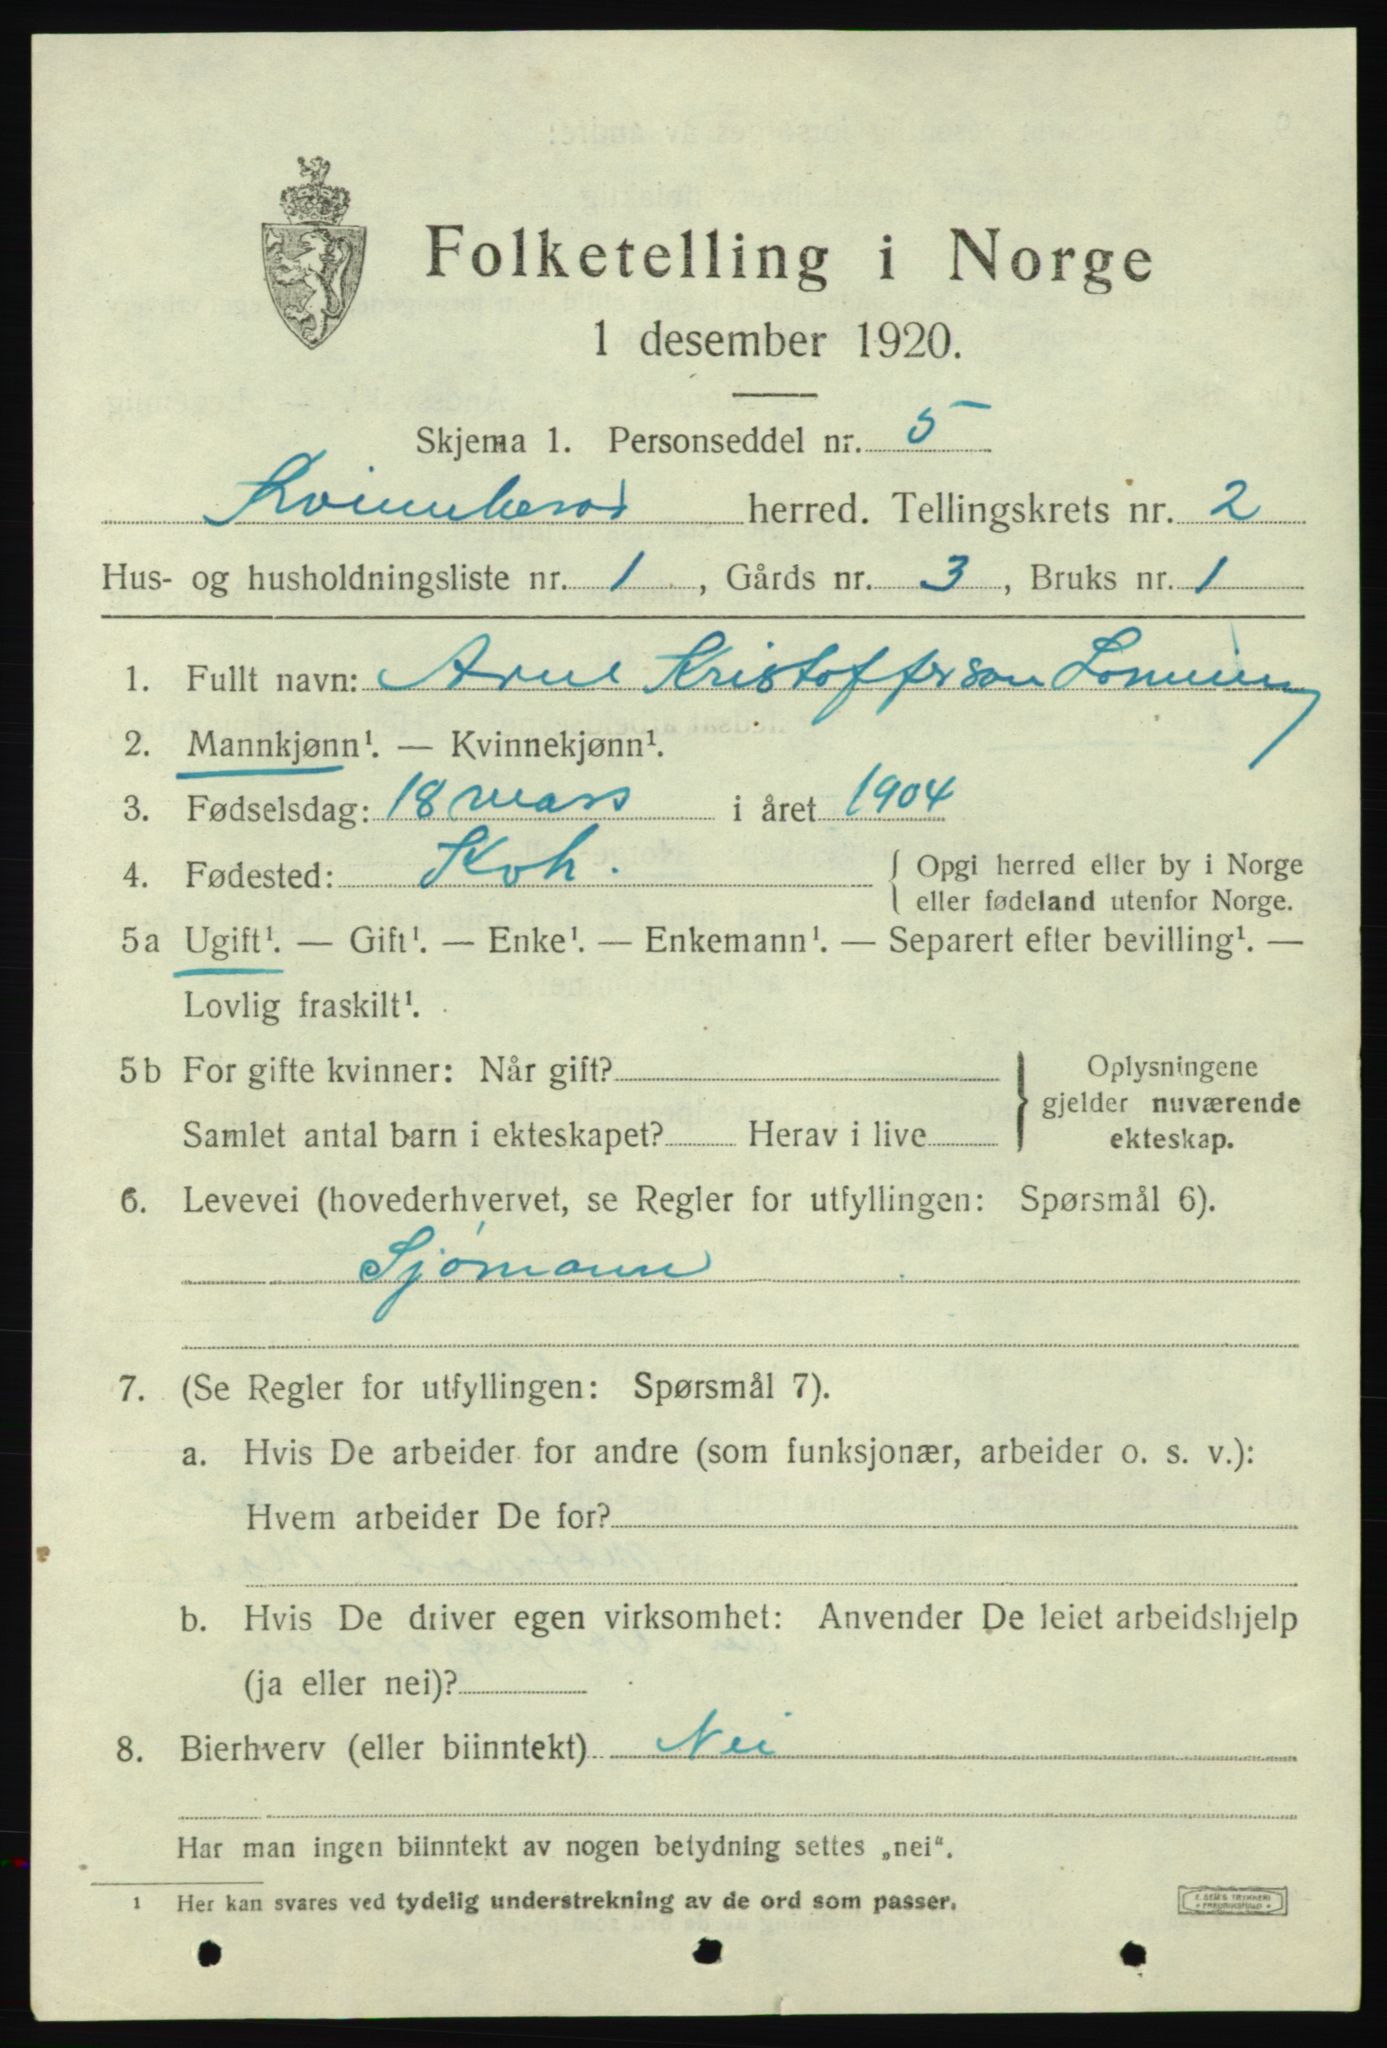 Folketelling i Norge
1 desember 1920.
Skjema 1. Personseddel nr. 5
Kvinnherad herred. Tellingskrets nr. 2
Hus- og husholdningsliste nr. 1, Gårds nr. 3, Bruks nr. 1
1. Fullt navn: Arne Kristofferson
2. Mannkjønn¹. — Kvinnekjønn¹.
3. Fødselsdag: 18 mars i året 1904
4. Fødested: Kvh. { Opgi herred eller by i Norge
eller fødeland utenfor Norge.
5a Ugift¹. — Gift¹. — Enke¹. — Enkemann¹. — Separert efter bevilling¹. —
Lovlig fraskilt¹.
5b For gifte kvinner: Når gift?
Samlet antal barn i ekteskapet? Herav i live
} Oplysningene
gjelder nuværende
ekteskap.
6. Levevei (hovederhvervet, se Regler for utfyllingen: Spørsmål 6).
Sjømann
7. (Se Regler for utfyllingen: Spørsmål 7).
a. Hvis De arbeider for andre (som funksjonær, arbeider o. s. v.):
Hvem arbeider De for?
b. Hvis De driver egen virksomhet: Anvender De leiet arbeidshjelp
(ja eller nei)?
8. Bierhverv (eller biinntekt) Nei
Har man ingen biinntekt av nogen betydning settes „nei“.
1 Her kan svares ved tydelig understrekning av de ord som passer.
E. SEM'S TRYKKERI
FREDRIKSHALD